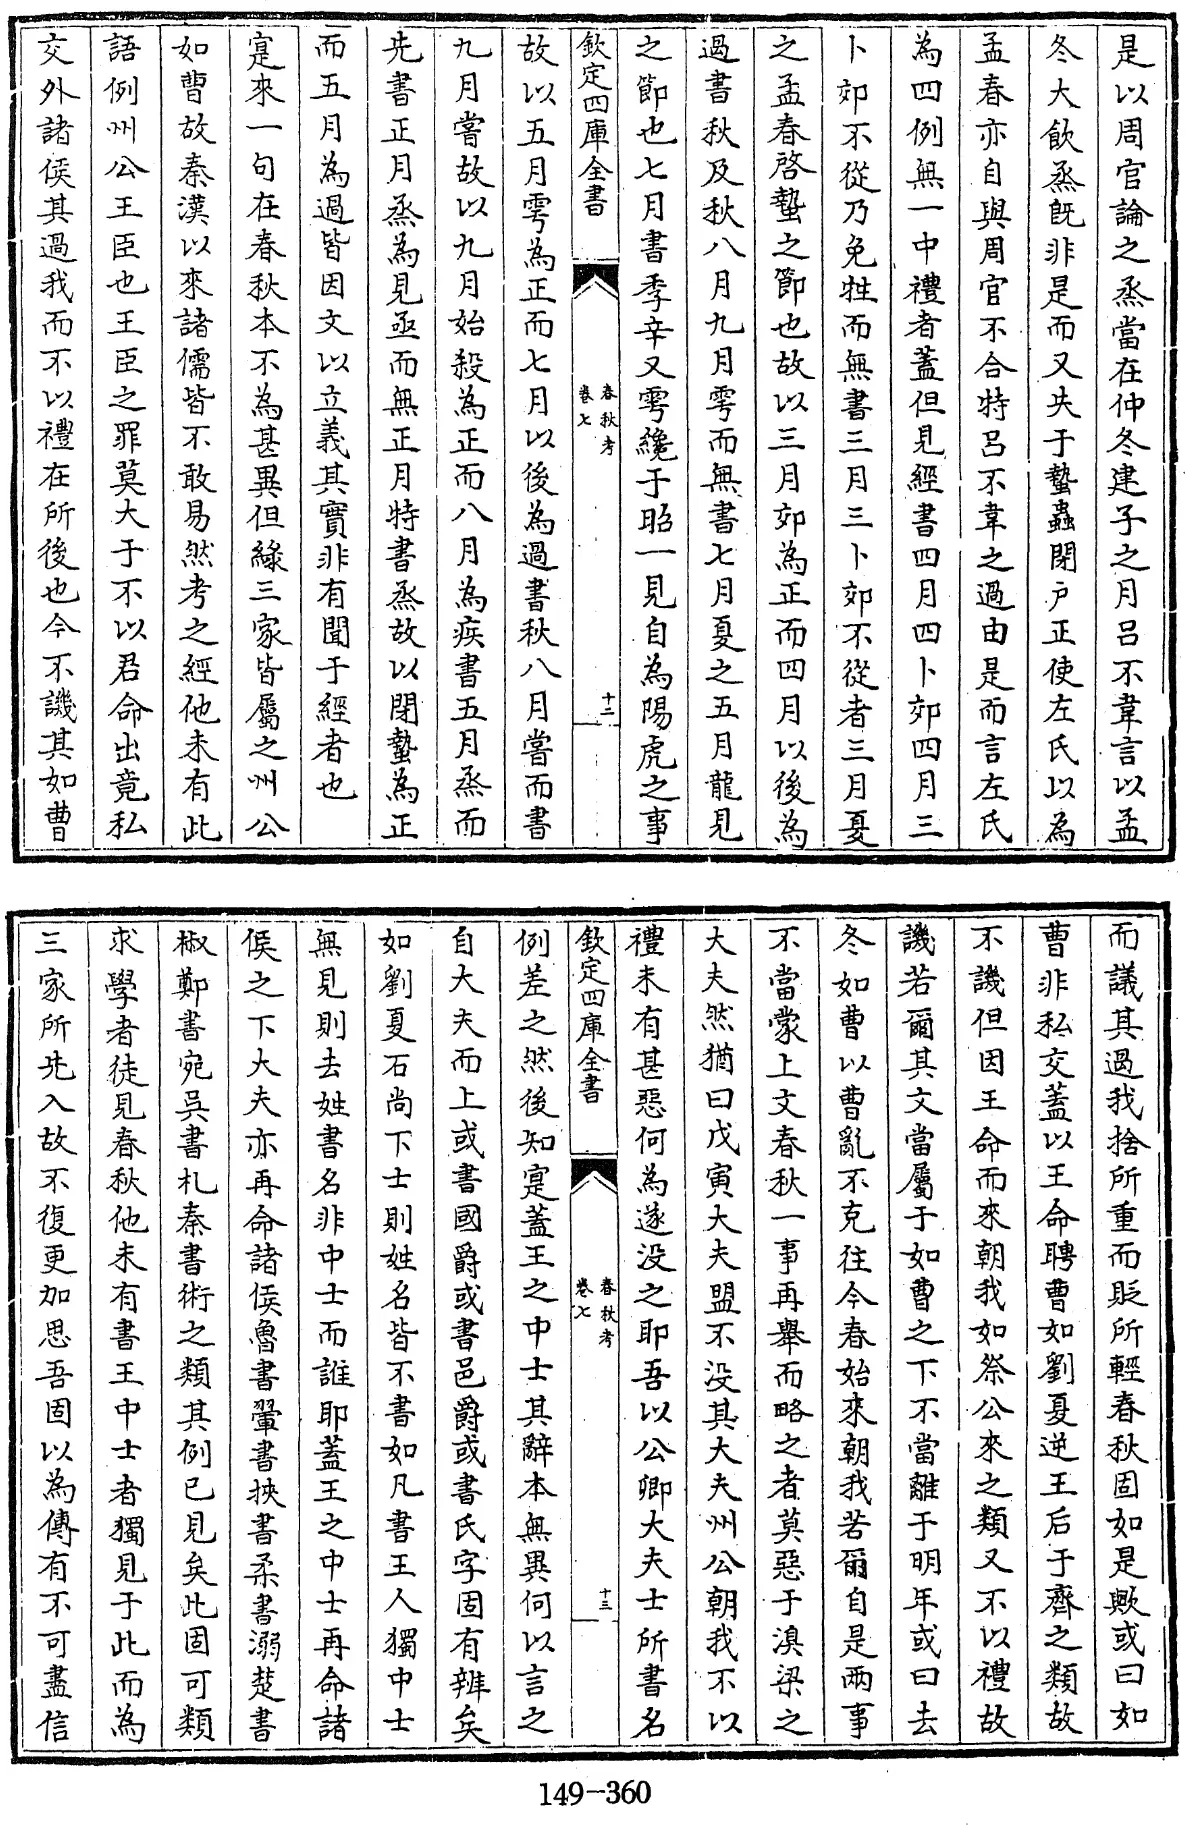 是以周官論之烝當在仲冬建子之月呂不韋言以孟
冬大飲烝既非是而又失于蟄蟲閉户正使左氏以為
孟春亦自與周官不合特呂不韋之過由是而言左氏
為四例無一中禮者蓋但見經書四月四卜郊四月三
卜郊不從乃免牲而無書三月三卜郊不從者三月夏
之孟春啓蟄之節也故以三月郊為正而四月以後為
過書秋及秋八月九月雩而無書七月夏之五月龍見
之節也七月書季辛又雩纔于昭一見自為陽虎之事
欽定四庫全書
春秋考
卷七
十二
故以五月雩為正而七月以後為過書秋八月嘗而書
九月嘗故以九月始殺為正而八月為疾書五月烝而
先書正月烝為見亟而無正月特書烝故以閉蟄為正
而五月為過皆因文以立義其實非有聞于經者也
寔來一句在春秋本不為甚異但緣三家皆屬之州公
如曹故秦漢以來諸儒皆不敢易然考之經他未有此
語例州公王臣也王臣之罪莫大于不以君命出竟私
交外諸侯其過我而不以禮在所後也今不譏其如曹
而議其過我捨所重而貶所輕春秋固如是歟或曰如
曹非私交蓋以王命聘曹如劉夏逆王后于齊之類故
不譏但因王命而來朝我如祭公來之類又不以禮故
譏若爾其文當屬于如曹之下不當離于明年或曰去
冬如曹以曹亂不克往今春始來朝我若爾自是兩事
不當蒙上文春秋一事再舉而略之者莫惡于湨梁之
大夫然猶曰戊寅大夫盟不没其大夫州公朝我不以
禮未有甚惡何為遂没之耶吾以公卿大夫士所書名
欽定四庫全書
春秋考
卷七
十三
例差之然後知寔蓋王之中士其辭本無異何以言之
自大夫而上或書國爵或書邑爵或書氏字固有辨矣
如劉夏石尚下士則姓名皆不書如凡書王人獨中士
無見則去姓書名非中士而誰耶蓋王之中士再命諸
侯之下大夫亦再命諸侯魯書翬書挾書柔書溺楚書
椒鄭書宛吳書札秦書術之類其例已見矣此固可類
求學者徒見春秋他未有書王中士者獨見于此而為
三家所先入故不復更加思吾固以為傳有不可盡信
149-360